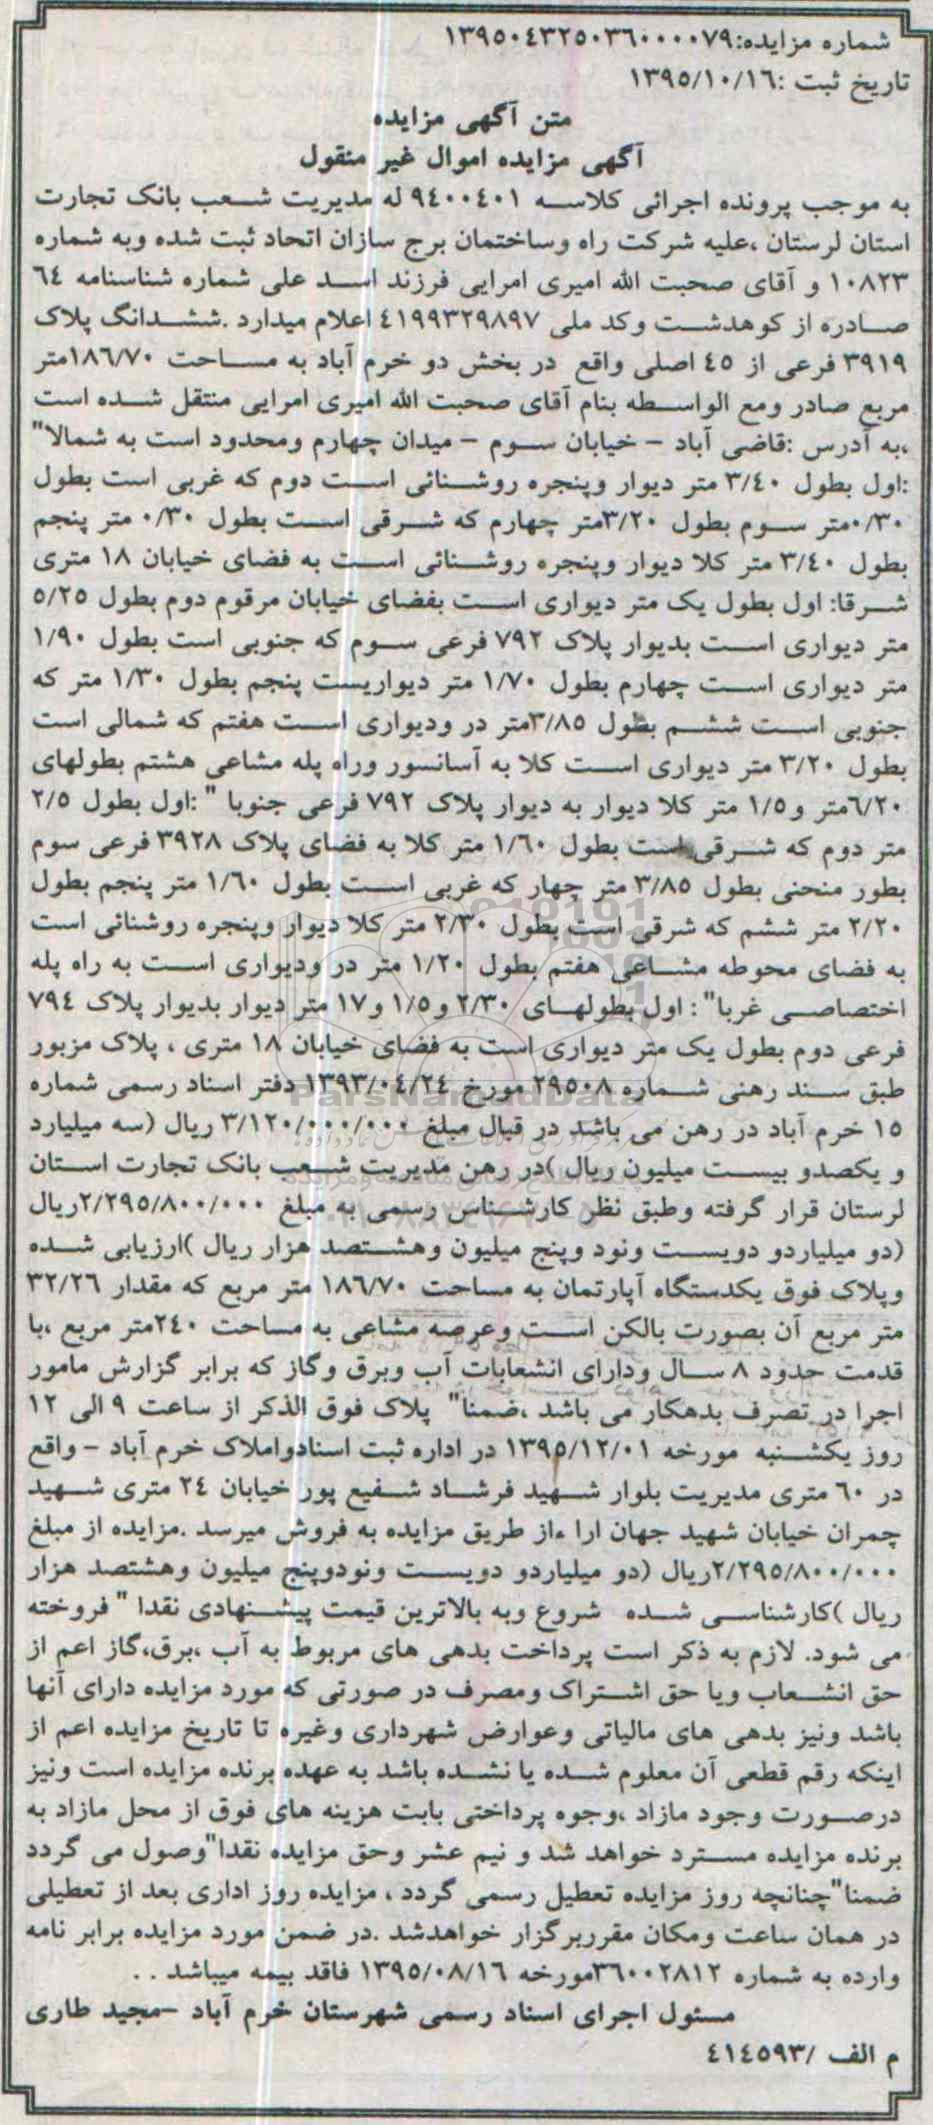 شماره مزایده:۱۳۹۵۰۴۳۲۵۰۳۶۰۰۰۰۷۹
تاریخ ثبت :۱۳۹۵/۱۰/۱۶
متن آگهی مزایده
آگهی مزایده اموال غیر منقول
به موجب پرونده اجرائی کلاسه ۹۴۰۰۴۰۱ له مدیریت شعب بانک تجارت
استان لرستان ،علیه شرکت راه وساختمان برج سازان اتحاد ثبت شده وبه شماره
۱۰۸۲۳ و آقای صحبت الله امیری امرایی فرزند اسد علی شماره شناسنامه ۶۴
صادره از کوهدشت وکد ملی ۴۱۹۹۳۲۹۸۹۷ اعلام میدارد .ششدانگ پلاک
۳۹۱۹ فرعی از ۴۵ اصلی واقع در بخش دو خرم آباد به مساحت ۱۸۶/۷۰متر
مربع صادر ومع الواسطه بنام آقای صحبت الله امیری امرایی منتقل شده است
،به آدرس :قاضی آباد – خیابان سوم – میدان چهارم ومحدود است به شمالا"
:اول بطول ۳/۴۰ متر دیوار وپنجره روشنائی است دوم که غربی است بطول
۰/۳۰متر سوم بطول ۳/۲۰متر چهارم که شرقی است بطول ۰/۳۰ متر پنجم
بطول ۳/۴۰ متر کلا دیوار وپنجره روشنائی است به فضای خیابان ۱۸ متری
شرقا: اول بطول یک متر دیواری است بفضای خیابان مرقوم دوم بطول ۵/۲۵
متر دیواری است بدیوار پلاک ۷۹۲ فرعی سوم که جنوبی است بطول ۱/۹۰
متر دیواری است چهارم بطول ۱/۷۰ متر دیواریست پنجم بطول ۱/۳۰ متر که
جنوبی است ششم بطول ۳/۸۵متر در ودیواری است هفتم که شمالی است
بطول ۳/۲۰ متر دیواری است کلا به آسانسور وراه پله مشاعی هشتم بطولهای
۶/۲۰متر و۱/۵ متر کلا دیوار به دیوار پلاک ۷۹۲ فرعی جنوبا " :اول بطول ۲/۵
متر دوم که شرقی است بطول ۱/۶۰ متر کلا به فضای پلاک ۳۹۲۸ فرعی سوم
بطور منحنی بطول ۳/۸۵ متر چهار که غربی است بطول ۱/۶۰ متر پنجم بطول
۲/۲۰ متر ششم که شرقی است بطول ۲/۳۰ متر کلا دیوار وپنجره روشنائی است
به فضای محوطه مشاعی هفتم بطول ۱/۲۰ متر در ودیواری است به راه پله
اختصاصی غربا" : اول بطولهای ۲/۳۰ و۱/۵ و۱۷ متر دیوار بدیوار پلاک ۷۹۴
فرعی دوم بطول یک متر دیواری است به فضای خیابان ۱۸ متری ، پلاک مزبور
طبق سند رهنی شماره ۲۹۵۰۸ مورخ ۱۳۹۳/۰۴/۲۴ دفتر اسناد رسمی شماره
۱۵ خرم آباد در رهن می باشد در قبال مبلغ ۳/۱۲۰/۰۰۰/۰۰۰ ریال (سه میلیارد
و یکصدو بیست میلیون ریال )در رهن مدیریت شعب بانک تجارت استان
لرستان قرار گرفته وطبق نظر کارشناس رسمی به مبلغ ۲/۲۹۵/۸۰۰/۰۰۰ریال
(دو میلیاردو دویست ونود وپنج میلیون وهشتصد هزار ریال )ارزیابی شده
وپلاک فوق یکدستگاه آپارتمان به مساحت ۱۸۶/۷۰ متر مربع که مقدار ۳۲/۲۶
متر مربع آن بصورت بالکن است وعرصه مشاعی به مساحت ۲۴۰متر مربع ،با
قدمت حدود ۸ سال ودارای انشعابات آب وبرق وگاز که برابر گزارش مامور
اجرا در تصرف بدهکار می باشد ،ضمنا" پلاک فوق الذکر از ساعت ۹ الی ۱۲
روز یکشنبه مورخه ۱۳۹۵/۱۲/۰۱ در اداره ثبت اسنادواملاک خرم آباد – واقع
در ۶۰ متری مدیریت بلوار شهید فرشاد شفیع پور خیابان ۲۴ متری شهید
چمران خیابان شهید جهان ارا ءاز طریق مزایده به فروش میرسد .مزایده از مبلغ
۲/۲۹۵/۸۰۰/۰۰۰ریال (دو میلیاردو دویست ونودوپنج میلیون وهشتصد هزار
ریال )کارشناسی شده شروع وبه بالاترین قیمت پیشنهادی نقدا " فروخته
می شود. لازم به ذکر است پرداخت بدهی های مربوط به آب ،برق،گاز اعم از
حق انشعاب ویا حق اشتراک ومصرف در صورتی که مورد مزایده دارای آنها
باشد ونیز بدهی های مالیاتی وعوارض شهرداری وغیره تا تاریخ مزایده اعم از
اینکه رقم قطعی آن معلوم شده یا نشده باشد به عهده برنده مزایده است ونیز
درصورت وجود مازاد ،وجوه پرداختی بابت هزینه های فوق از محل مازاد به
برنده مزایده مسترد خواهد شد و نیم عشر وحق مزایده نقدا"وصول می گردد
ضمنا"چنانچه روز مزایده تعطیل رسمی گردد ، مزایده روز اداری بعد از تعطیلی
در همان ساعت ومکان مقرربرگزار خواهدشد .در ضمن مورد مزایده برابر نامه
وارده به شماره ۳۶۰۰۲۸۱۲مورخه ۱۳۹۵/۰۸/۱۶ فاقد بیمه میباشد . .
مسئول اجرای اسناد رسمی شهرستان خرم آباد –مجید طاری
م الف /۴۱۴۵۹۳
ParsNamadData